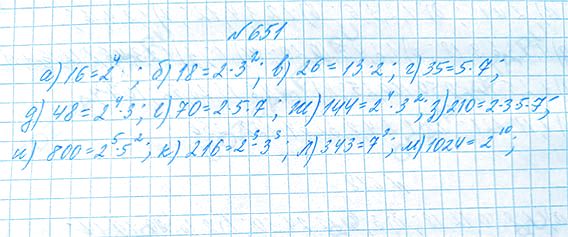 №651
а) 16=2⁴; б) 18=2·3²; в) 26=13·2; г) 35=5·7;
д) 48=2⁴·3; е) 70=2·5·7; ж) 144=2⁴·3²; з) 210=2·35·7;
и) 800=2⁵·5²; к) 216=2³·3³; л) 343=7³; м) 1024=2¹⁰;